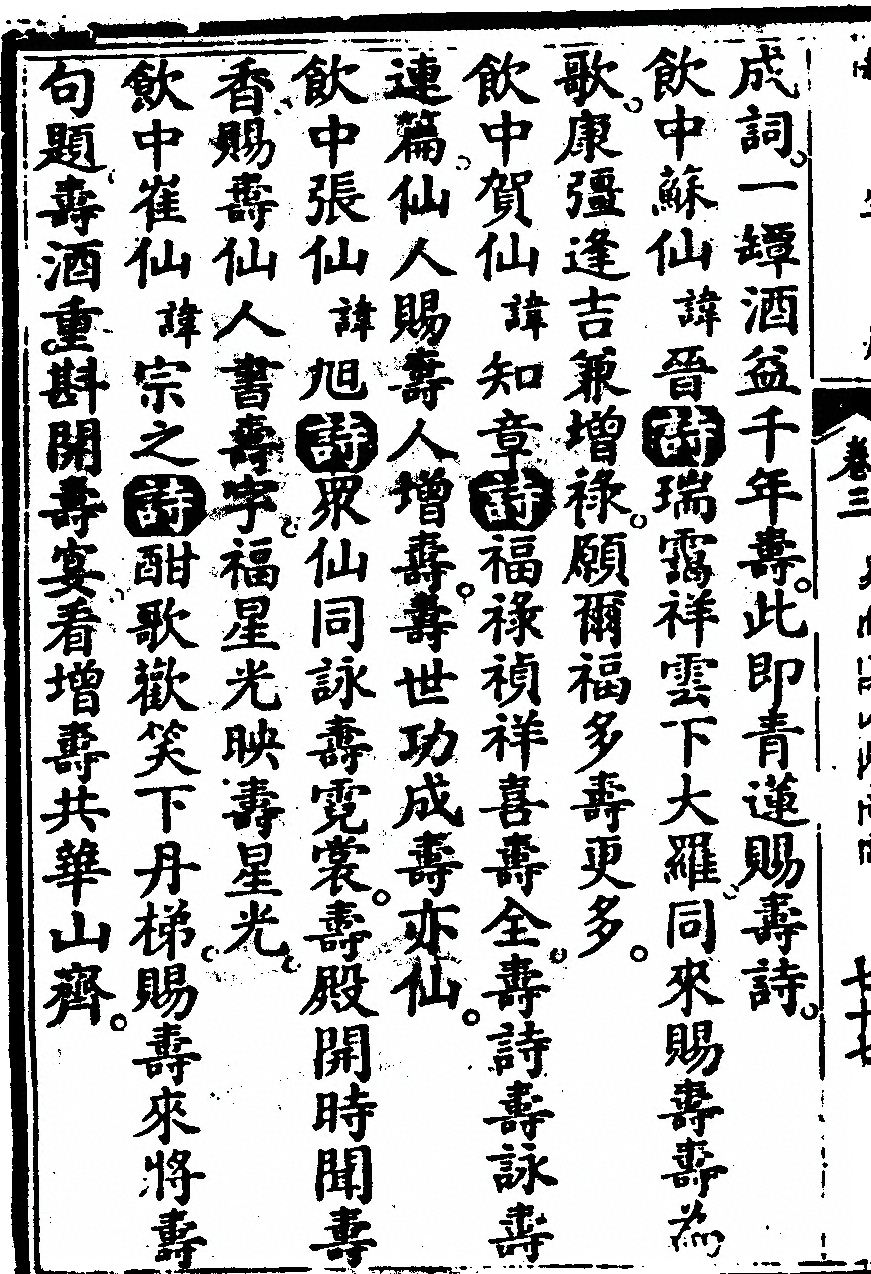 卷三
七十七
成詞。一罈酒益千年壽。此即青蓮賜壽詩。
飲中蘇仙諱晉詩瑞靄祥雲下大羅。同來賜壽壽為
歌。康彊逢吉兼增祿。願爾福多壽更多。
飲中賀仙諱知章詩福祿禎祥喜壽全。壽詩壽詠壽
連篇。仙人賜壽人增壽。壽世功成壽亦仙。
飲中張仙諱旭詩眾仙同詠壽霓裳。壽殿開時聞壽
香。賜壽仙人書壽字。福星光映壽星光。
飲中崔仙諱宗之詩酣歌歡笑下丹梯。賜壽來將壽
句題。壽酒重斟開壽宴。看增壽共華山齊。